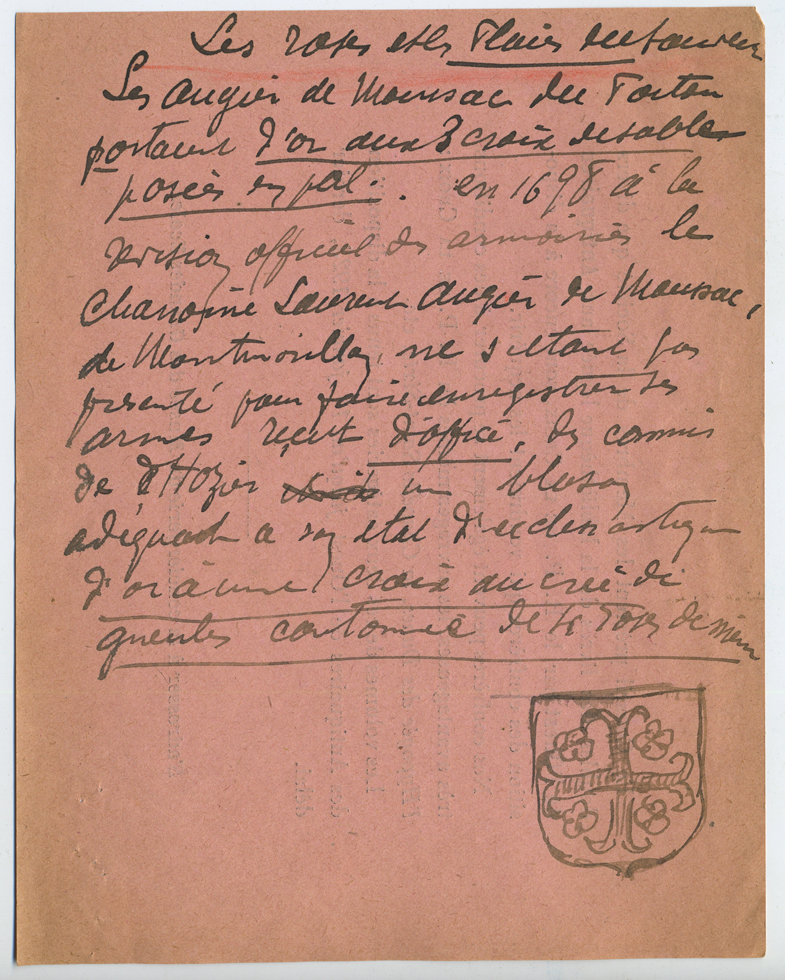 Les roses et les Plaies du Sauveur
Les Augier de Moussac du Poitou
portaient d'or aux 3 croix de sable
posées en pal. . en 1698 à la
révision officiel des armoiries le
Chanoine Laurent Augier de Moussac,
de Montmorillon, ne s'etant pas
présenté pour faire enregistrer ses
armes reçut d'office, des commis
de d'Hozier un blason
adéquat a son etat d'ecclesiastique
d'or à une croix ancrée de
gueules cantonnée de 4 roses de même